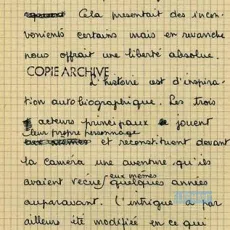 Cela présentait des incon-
vénients certains mais en revanche
nous offrait une liberté absolue.
COPIE ARCHIVE
L'histoire est d'inspira-
tion autobiographique. Les trois
acteurs principaux jouent
leur propre personnage
et reconstituent devant
la caméra une aventure qu'ils
eux-mêmes
avaient vécue quelques années
auparavant. L'intrigue a par
ailleurs été modifiée en ce qui